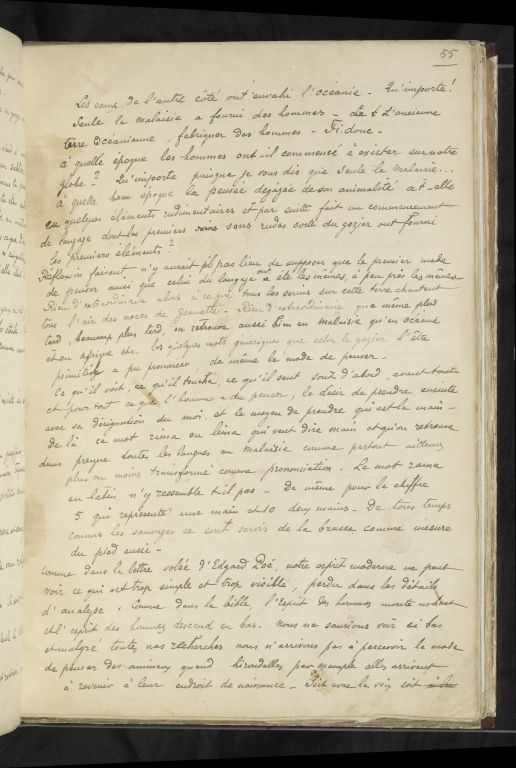 55
Les eaux de l'autre côté ont envahi l'océanie - Qu'importe!
Seule la malaisie a fourni des hommes - L'ancienne
terre Océanienne, fabriquer des hommes - Fi. donc -
à quelle époque les hommes ont-il commencé à exister sur notre
globe - ? Qu'importe puisque je vous dis que seule la Malaisie...
à quelle époque la pensée dégagée de son animalité a t-elle
eu quelques éléments rudimentaires et par suite fait un commencement
de langage dont les premiers sons rudes sortis du gozier ont fourni
les premiers éléments ?
Réflexion faisant n'y aurait-il pas lieu de supposer que le premier mode
de penser ainsi que celui du langage ont été les mêmes, à peu près les mêmes -
Rien d'extraordinaire alors à ce que tous les serins sur cette terre chantent
tous l'air des noces de Jeannette - Rien d'extraordinaire que même plus
tard, beaucoup plus tard, on retrouve aussi bien en Malaisie qu'en océanie
et en afrique etc. les quelques mots génériques que selon le gozier l'être
primitif a pu prononcer de même le mode de penser -
Ce qu'il voit, ce qu'il touche, ce qu'il sent sont d'abord, avant tout
et pour tout ce que l'homme a du penser, le désir de prendre ensuite
avec sa désignation du moi. et le moyen de prendre qui est la main -
De là ce mot rima ou lima qui veut dire main et qu'on retrouve
dans presque toutes les langues en Malaisie comme partout ailleurs
plus ou moins transformé comme prononciation. Le mot rama
en latin n'y ressemble t-il pas - De même pour le chiffre
5 qui représente une main et 10 deux mains - De tous temps
connus les sauvages se sont servis de la brasse comme mesure
du pied aussi -
Comme dans la lettre volée d'Edgard Poë, notre esprit moderne ne peut
voir ce qui est trop simple et trop visible, perdu dans les détails
d'analyse. Comme dans la bible, l'esprit des hommes monte en haut
et l'esprit des hommes descend en bas. nous ne saurions voir si bas
et malgré toutes nos recherches nous n'arrivons pas à percevoir le mode
de penser des animaux quand hirondelles par exemple elles arrivent
à revenir à leur endroit de naissance - Soit avec la voix soit